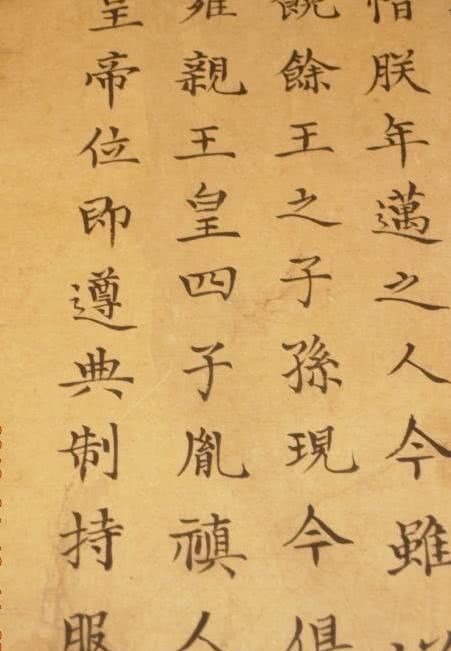 惜朕年邁之人今雖
饒餘王之子孫現今俱
雍親王皇四子胤禛人
皇帝位即遵典制持服